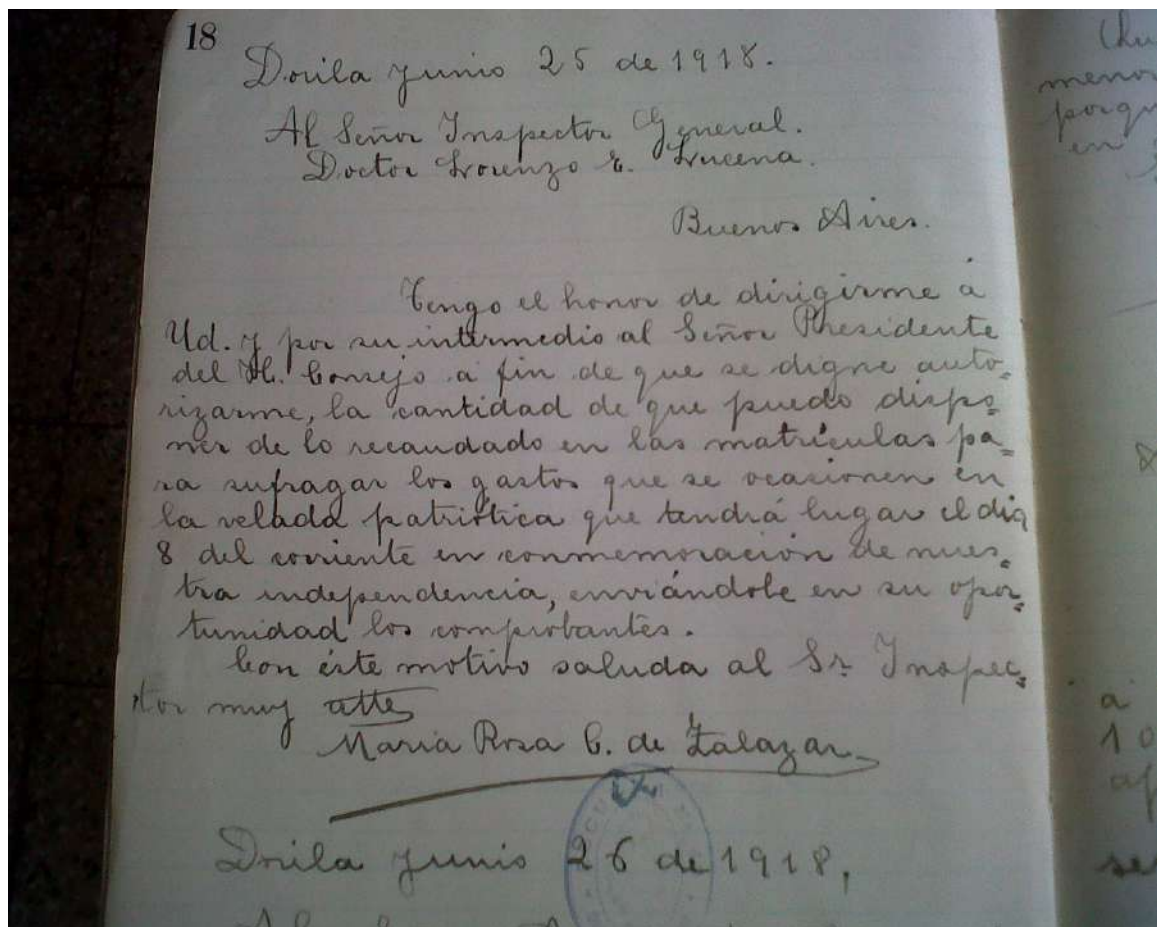 18
Dorila Junio 25 de 1918.
Al Señor Inspector General.
Doctor Lorenzo E. Lucena.
Buenos Aires.
Tengo el honor de dirigirme á
Ud. y por su intermedio al Señor Presidente
del H. Consejo a fin de que se digne auto=
rizarme, la cantidad de que puedo dispo=
ner de lo recaudado en las matrículas pa=
ra sufragar los gastos que se ocasionen en
la velada patriótica que tendrá lugar el dia
8 del corriente en conmemoración de nues=
tra independencia, enviándole en su opor=
tunidad los comprobantes.
Con éste motivo saluda al Sr. Inspec=
tor muy atte
María Rosa C. de Zalazar.
Dorila Junio 26 de 1918,
menor
en
a
10